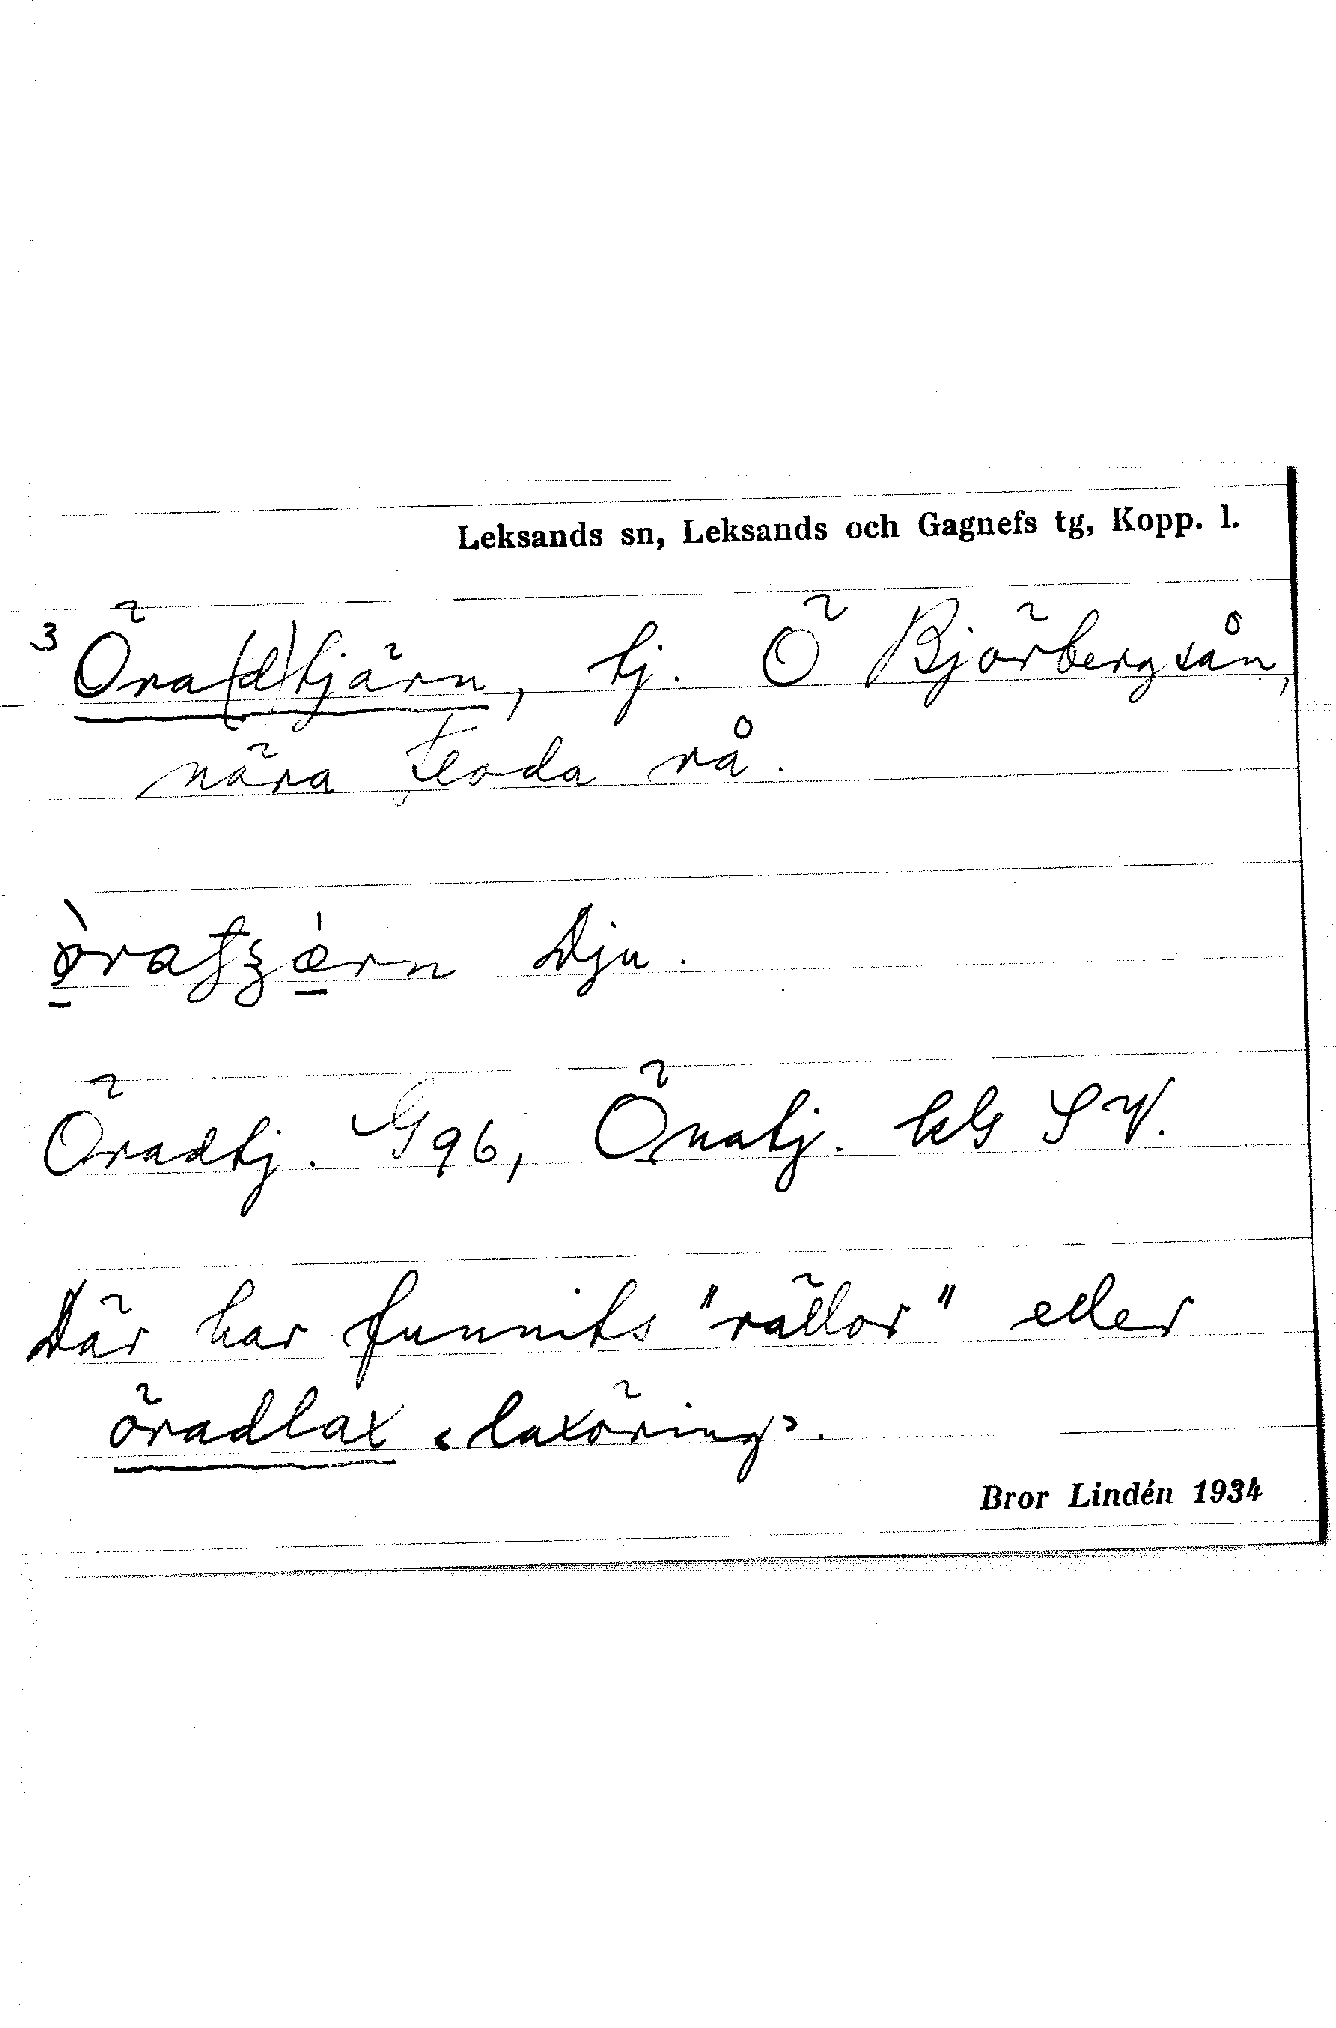 Leksands sn, Leksands och Gagnefs tg, Kopp. l.
3 Öra(d)tjärn, tj. Ö Björbergsån,
nära Floda rå.
Dju.
Öradtj. G96, Önatj. kG SV.
Där har funnits "rällor" eller
öradlax ‹laxöring›.
Bror Lindén 1934